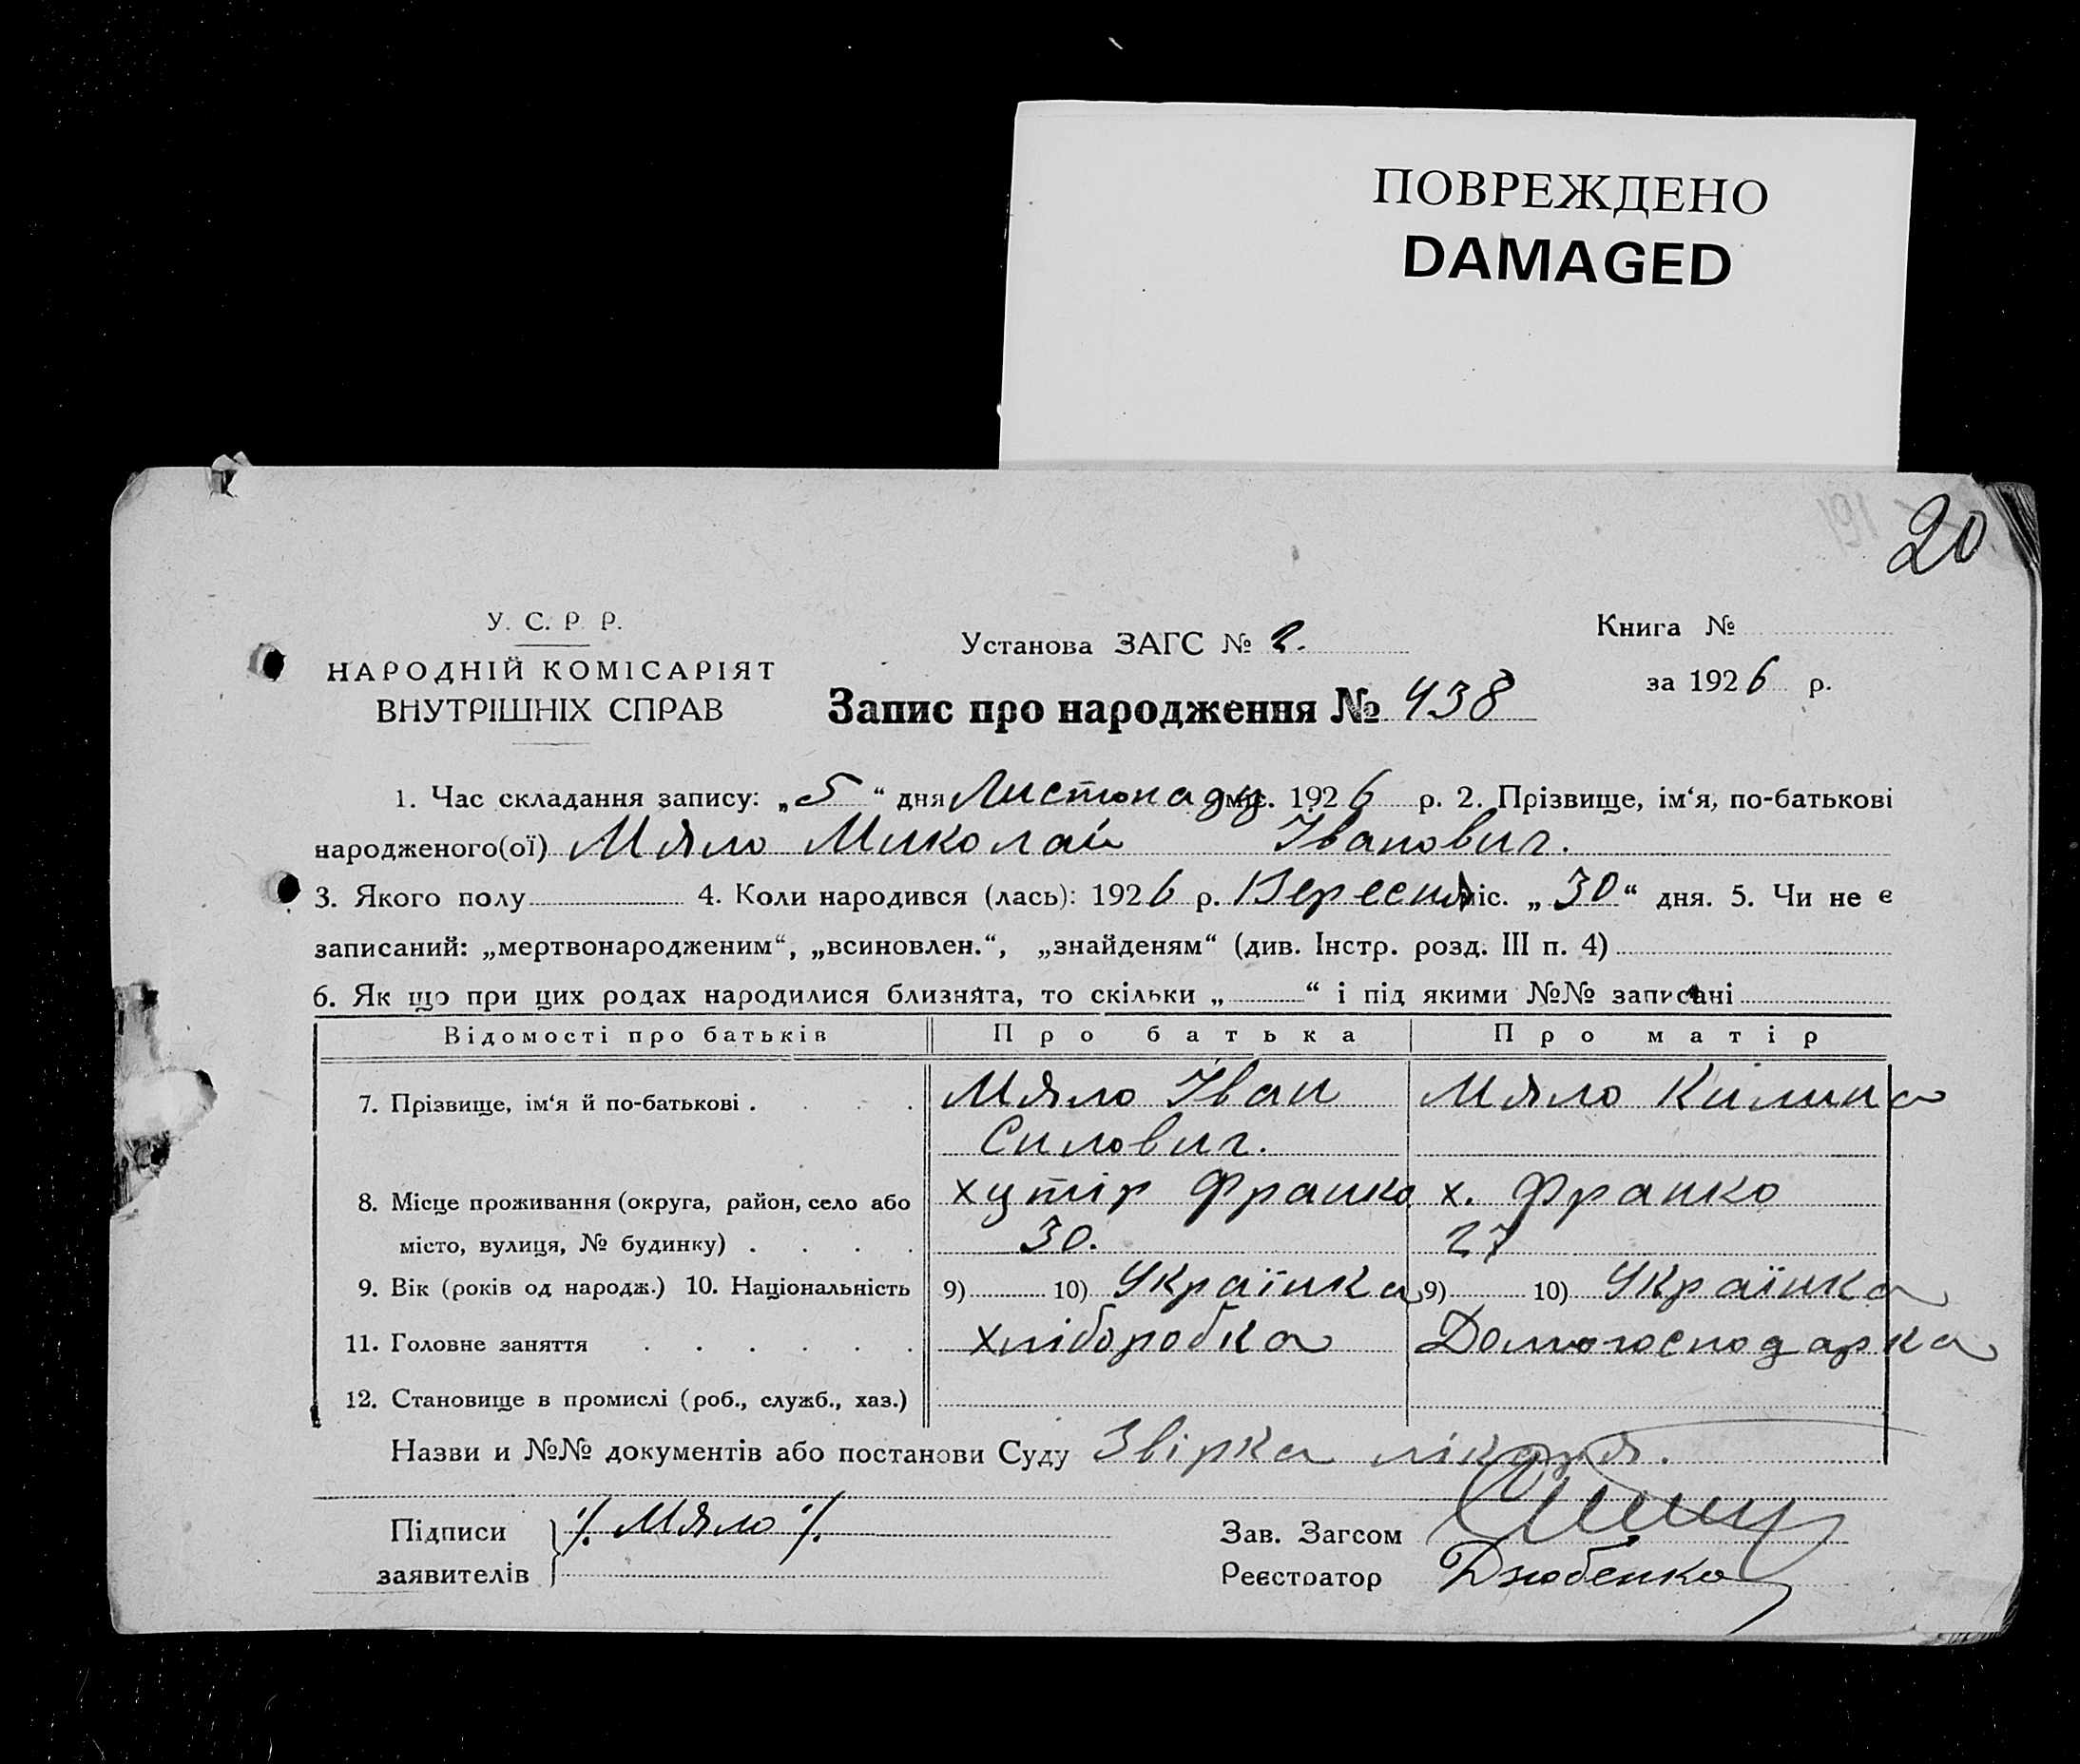 ПОВРЕЖДЕНО
DAMAGED
20
У. С. Р. Р.
НАРОДНІЙ КОМІСАРІЯТ
ВНУТРІШНІХ СПРАВ
Установа ЗАГС № 2.
Запис про народження № 438
Книга №
за 1926 р.
1. Час складання запису: „5“ дня Листопаду міс. 1926 р. 2. Прізвище, ім‘я, по-батькові
народженого(ої) Мяло Миколай Іванович.
3. Якого полу 4. Коли народився (лась): 1926 р. Вересня міс. „30“ дня. 5. Чи не є
записаний: „мертвонародженим“, „всиновлен.“, „знайденям“ (див. Інстр. розд. III п. 4)
6. Як що при цих родах народилися близнята, то скільки „ “ і під якими №№ записані
Відомості про батьків Про батька Про матір
7. Прізвище, ім‘я й по-батькові . . . . Мяло Іван Мяло Килина
Силович.
8. Місце проживання (округа, район, село або хутір Франко х. Франко
місто, вулиця, № будинку) . . . . 30. 27
9. Вік (років од народж.) 10. Національність 9) 10) Українка 9) 10) Українка
11. Головне заняття . . . . . . хліборобка Домогосподарка
12. Становище в промислі (роб., служб., хаз.)
Назви и №№ документів або постанови Суду Звірка лікаря.
Підписи /. Мяло /. Зав. Загсом
заявителів Реєстратор Дзюбенко